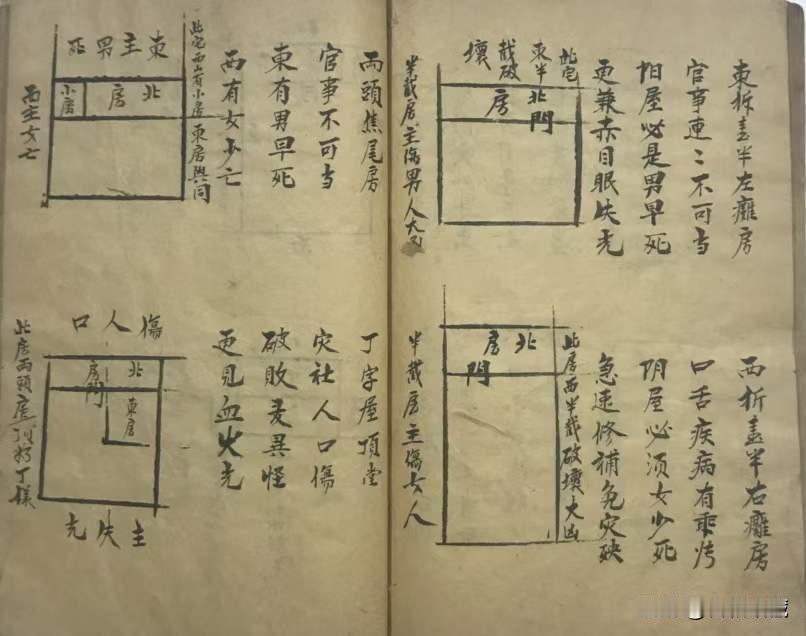 東拆盖半左癱房
官事連〻不可当
阳屋必是男早死
更兼赤目眼失光
此宅
東半
截破
壞
北房
門
半截房主傷男人大凶
西折盖半右癱房
口舌疾病有乖
阴屋必须女少死
急速修補免灾殃
此房西半截破壞大凶
北房
門
半截房主傷女人
兩頭焦尾房
官事不可当
東有男早死
西有女少亡
此宅西山有小房東房與同
東主男死
北房
小房
西主女亡
丁字屋頂堂
灾社人口傷
破敗麦異怪
更見血火光
傷人口
北房
門
東房
主失光
此房兩頭
丁樣